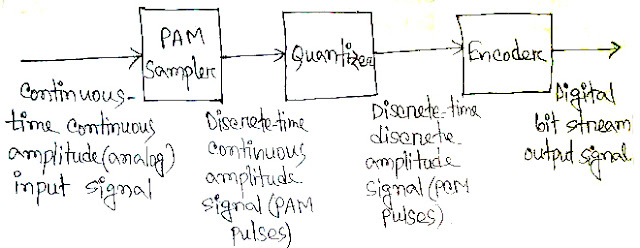 PAM
Sampler
Quantizer
Encoder
Continuous-
time continuous
amplitude(analog)
input signal
Discrete-time
continuous
amplitude
signal(PAM
pulses)
Discrete-time
discrete
amplitude
signal(PCM
pulses)
Digital
bit stream
output signal